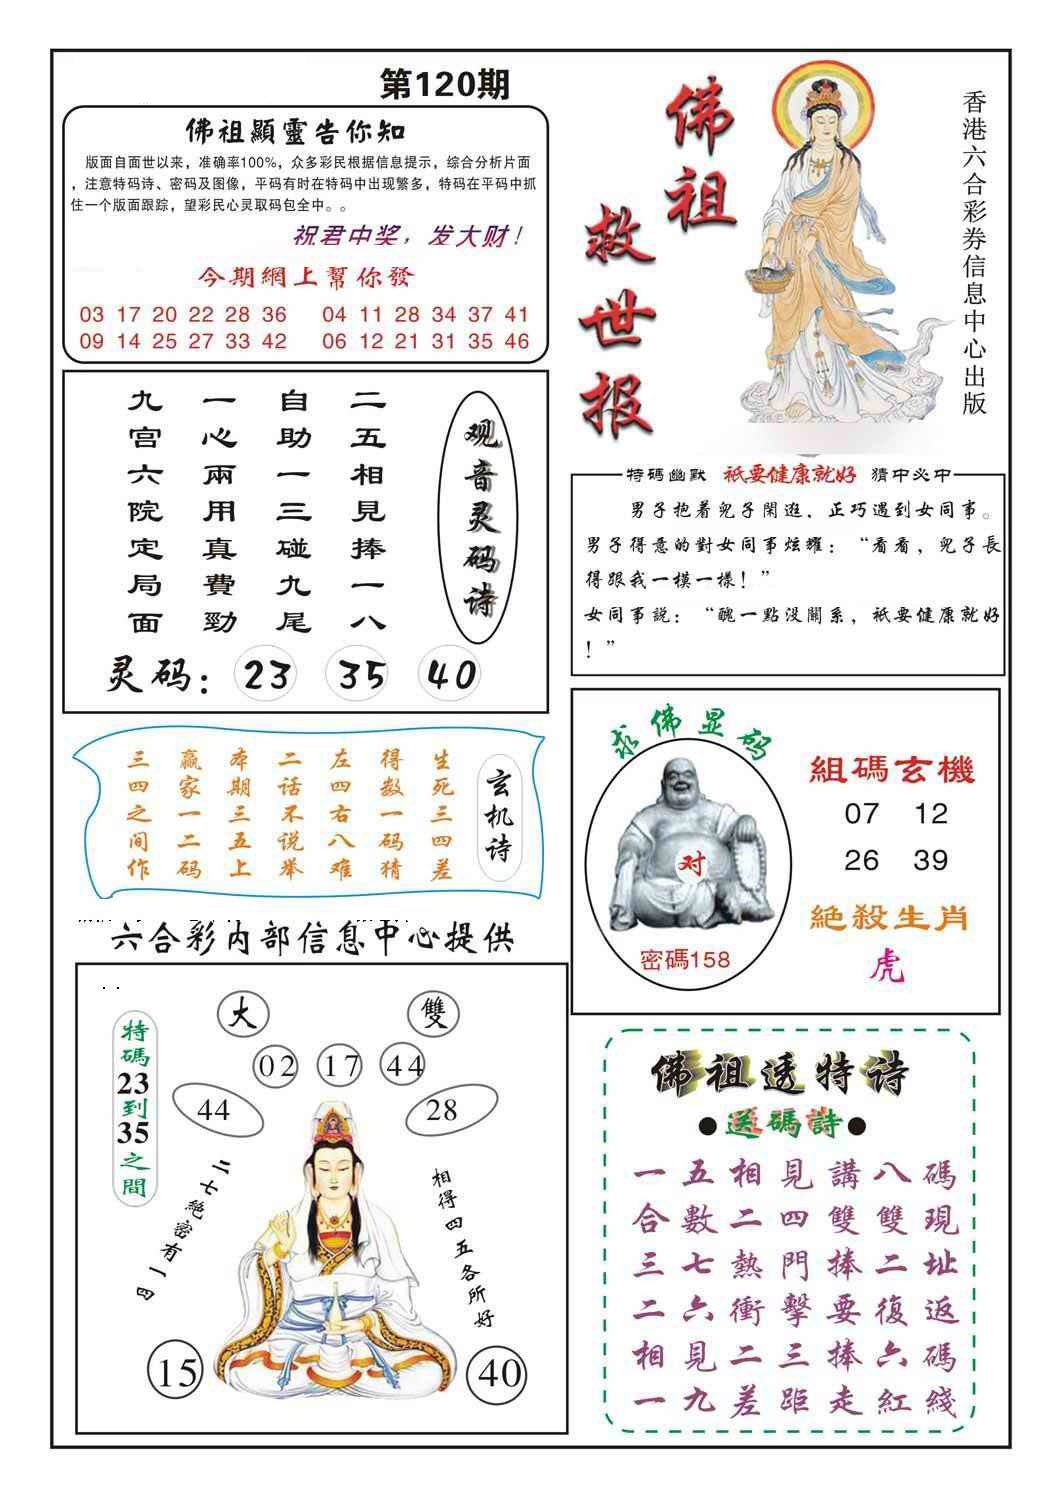 第120期
佛祖顯靈告你知
版面自面世以来，准确率100%，众多彩民根据信息提示，综合分析片面
，注意特码诗、密码及图像，平码有时在特码中出现繁多，特码在平码中抓
住一个版面跟踪，望彩民心灵取码包全中。。
祝君中奖，发大财！
今期網上幫你發
03 17 20 22 28 36 04 11 28 34 37 41
09 14 25 27 33 42 06 12 21 31 35 46
佛祖
救世报
香港六合彩券信息中心出版
观音灵码诗
二五相見捧一八
自助一三碰九尾
一心兩用真費勁
九宫六院定局面
灵码：23 35 40
特碼幽默 衹要健康就好 猜中必中
男子抱着兒子閑逛，正巧遇到女同事。
男子得意的對女同事炫耀：“看看，兒子長
得跟我一模一樣！”
女同事説：“醜一點没關系，衹要健康就好
！”
玄机诗
生死三四差
得数一码猜
左四右八难
二话不说举
本期三五上
赢家一二码
三四之间作
求佛显码
对
密碼158
組碼玄機
07 12
26 39
絶殺生肖
虎
六合彩内部信息中心提供
特碼23到35之間
大 雙
02 17 44
44 28
二七絶密有一四
相得四五各所好
15 40
佛祖透特诗
●送碼詩●
一五相見講八碼
合數二四雙雙現
三七熱門捧二址
二六衝擊要復返
相見二三捧六碼
一九差距走紅綫